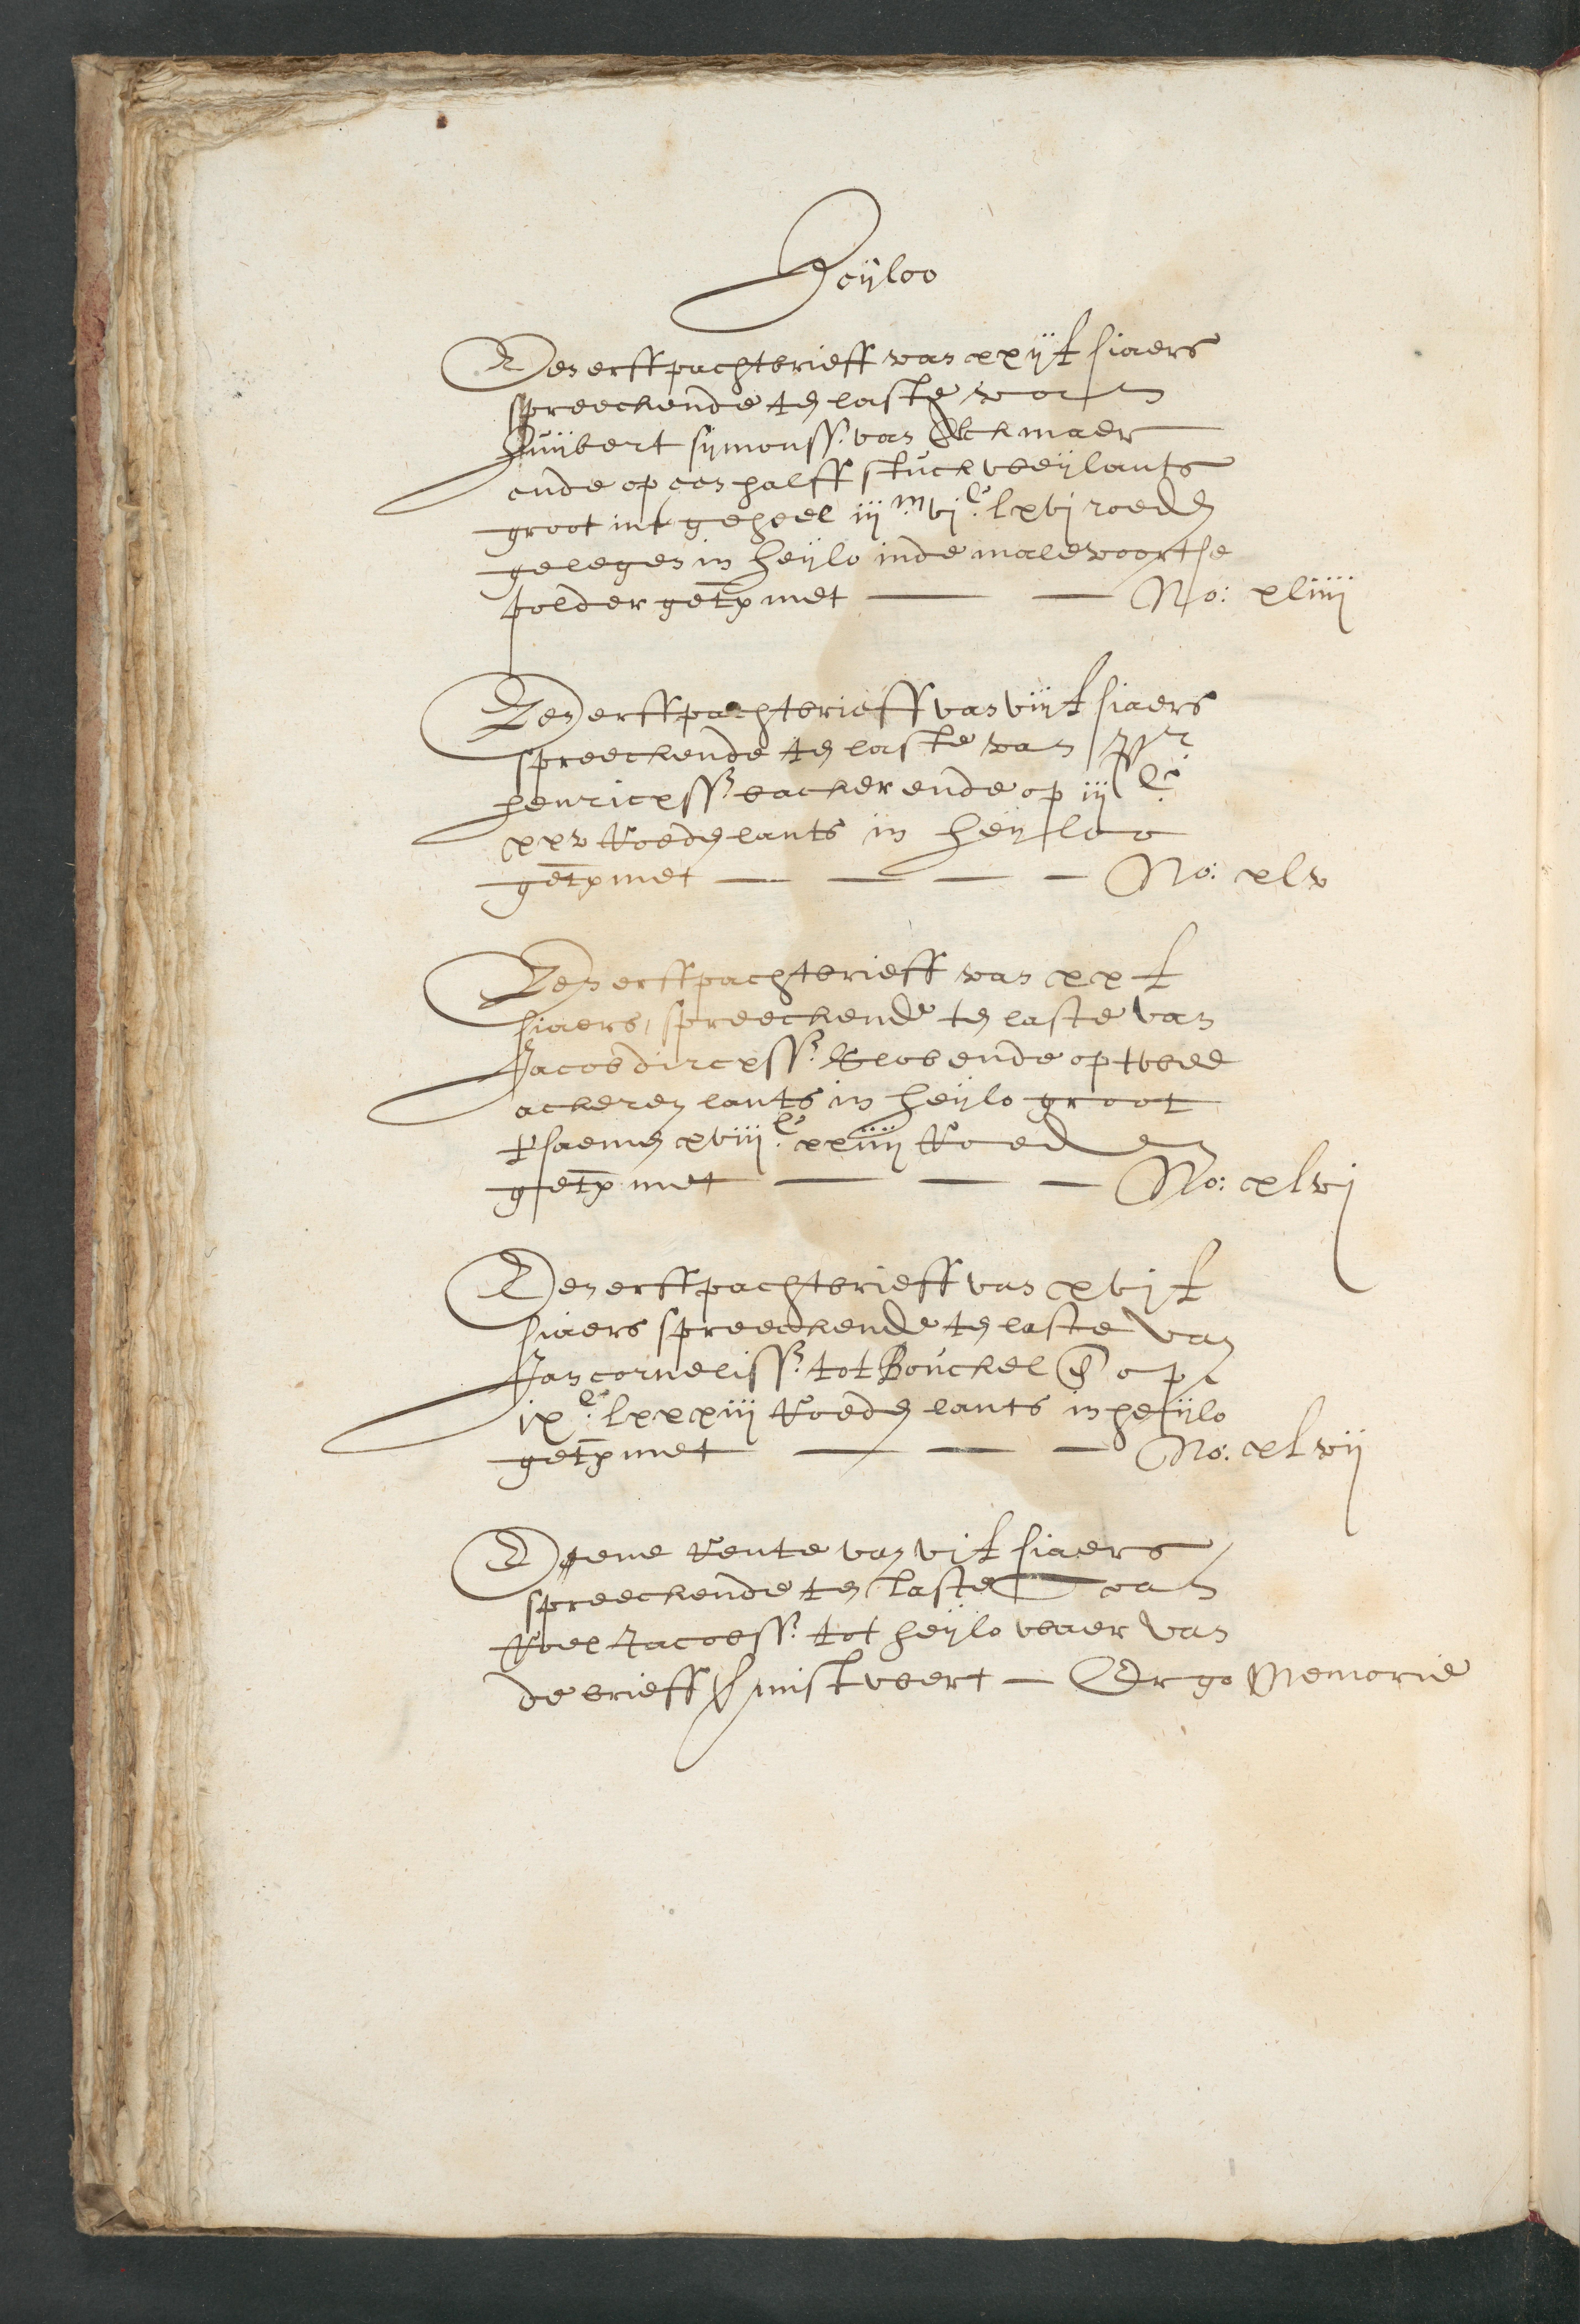 Heijloo
Een erffpachtbrieff van xxij £ siaers
spreeckende te laste van
Huijbert sijmonss. van Alckmaer
ende op een halff stuck weijlants
groot int geheel iij m vj c lxvj roeden
gelegen in heijlo inde malevoortse
polder getx met No: xliiij
Een erffpachtbrieff van viij £ siaers
spreeckende ten laste van
henricxss. backer ende op iij c
xxv Roeden lants in heijloo
getx met No: xlv
Een erffpachtbrieff van xx £
siaers, spreeckende ten laste van
Jacob dircxss. Blob ende op twee
ackeren lants in heijlo groot
tsaemen xviij c xxiiij Roeden
getx met No: xlvj
Een erffpachtbrieff van xvj £
siaers spreeckende ten laste van
Jan corneliss. tot Bouckel en op
ix c lxxxiij Roeden lants in heijlo
getx met No: xlvij
Eene Rente van vj £ siaers
spreeckende ten laste van
Roel Jacobss. tot heijlo waer van
de brieff gemist wert Ergo Memorie